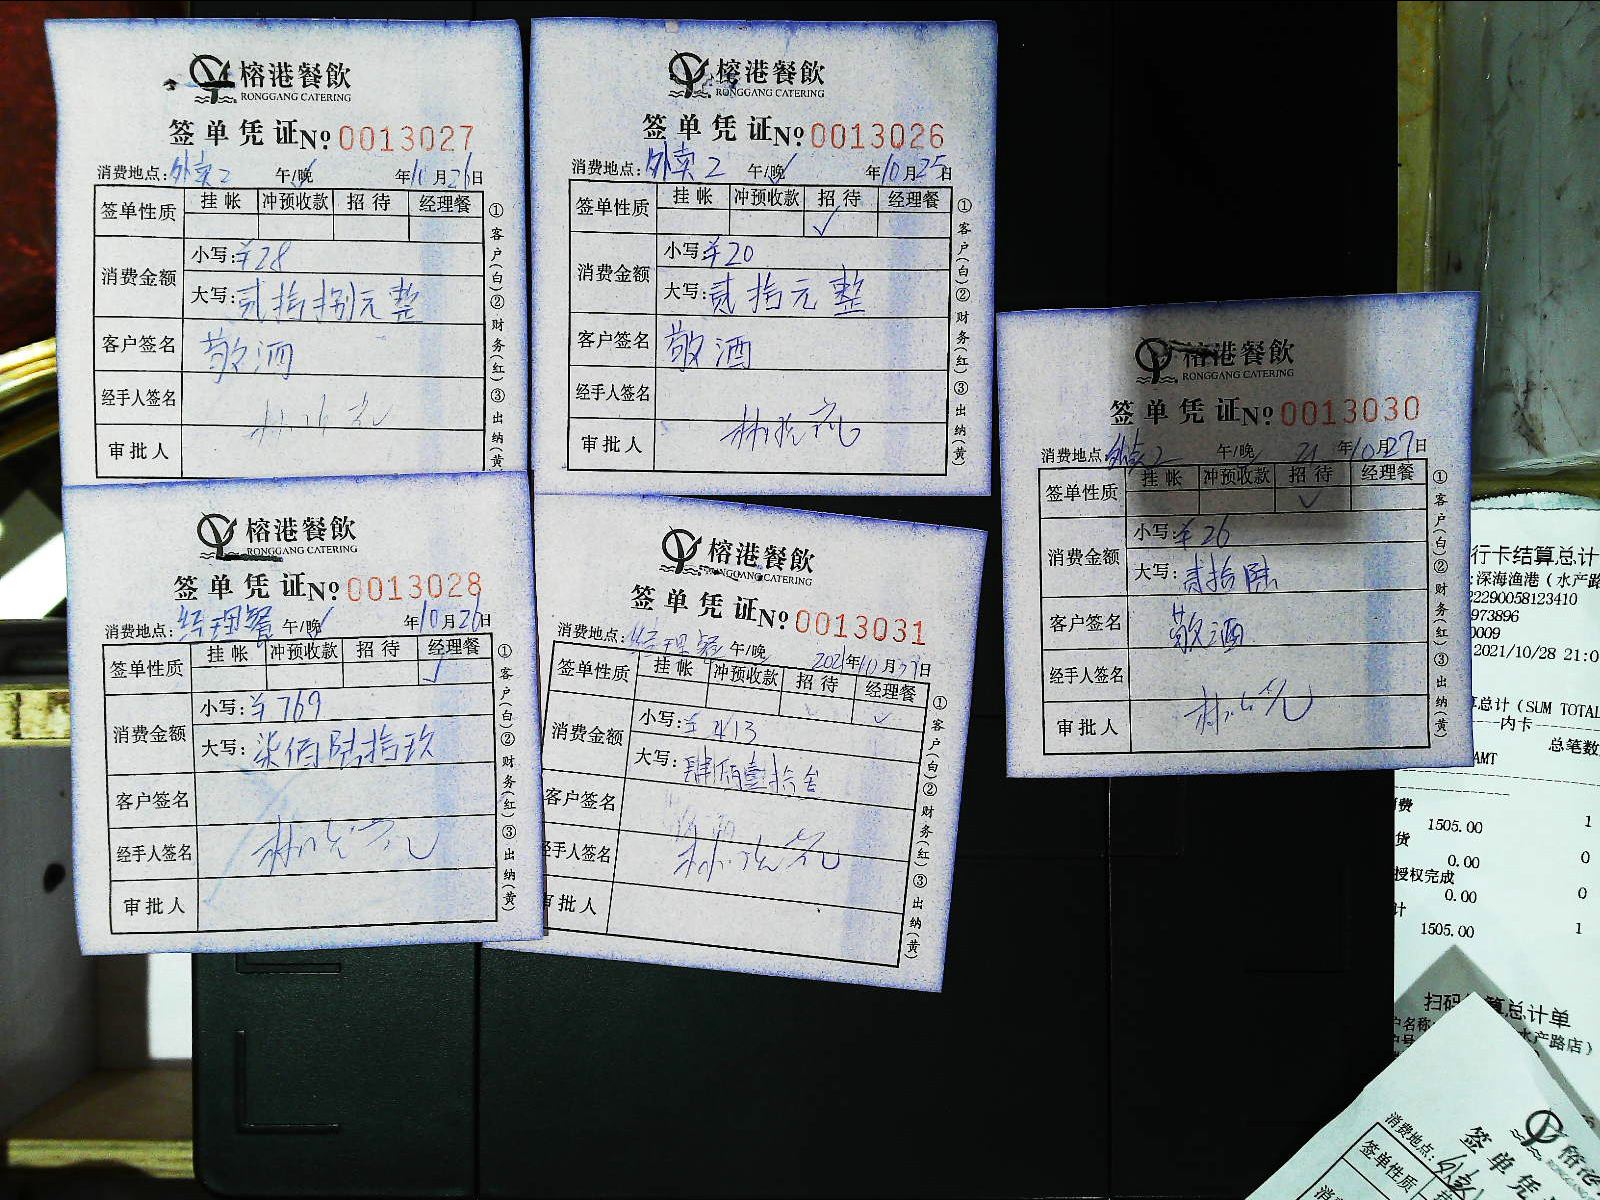 榕港餐飲
RONGGANG CATERING
签单凭证№ 0013027
消费地点:外卖2 午/晚 年10月26日
签单性质 挂帐 冲预收款 招待 经理餐
消费金额 小写:¥28
大写:贰拾捌元整
客户签名 敬酒
经手人签名
审批人
①客户(白)②财务(红)③出纳(黄)
榕港餐飲
RONGGANG CATERING
签单凭证№ 0013026
消费地点:外卖2 午/晚 年10月25日
签单性质 挂帐 冲预收款 招待 经理餐
✓
消费金额 小写:¥20
大写:贰拾元整
客户签名 敬酒
经手人签名
审批人
①客户(白)②财务(红)③出纳(黄)
榕港餐飲
RONGGANG CATERING
签单凭证№ 0013030
消费地点:外卖2 午/晚 21年10月27日
签单性质 挂帐 冲预收款 招待 经理餐
✓
消费金额 小写:¥26
大写:贰拾陆
客户签名 敬酒
经手人签名
审批人
①客户(白)②财务(红)③出纳(黄)
榕港餐飲
RONGGANG CATERING
签单凭证№ 0013028
消费地点:经理餐 午/晚 年10月26日
签单性质 挂帐 冲预收款 招待 经理餐
✓
消费金额 小写:¥769
大写:柒佰陆拾玖
客户签名
经手人签名
审批人
①客户(白)②财务(红)③出纳(黄)
榕港餐飲
RONGGANG CATERING
签单凭证№ 0013031
消费地点:经理餐 午/晚 2021年10月27日
签单性质 挂帐 冲预收款 招待 经理餐
✓
消费金额 小写:¥413
大写:肆佰壹拾叁
客户签名
经手人签名
审批人
①客户(白)②财务(红)③出纳(黄)
行卡结算总计
:深海渔港(水产路
22290058123410
973896
0009
2021/10/28 21:0
总计(SUM TOTAL
内卡
总笔数
AMT
费
1505.00 1
货
0.00 0
授权完成
0.00 0
计
1505.00 1
扫码 算总计单
户名称: 水产路店)
榕港
签单凭
消费地点:外卖
签单性质
消费